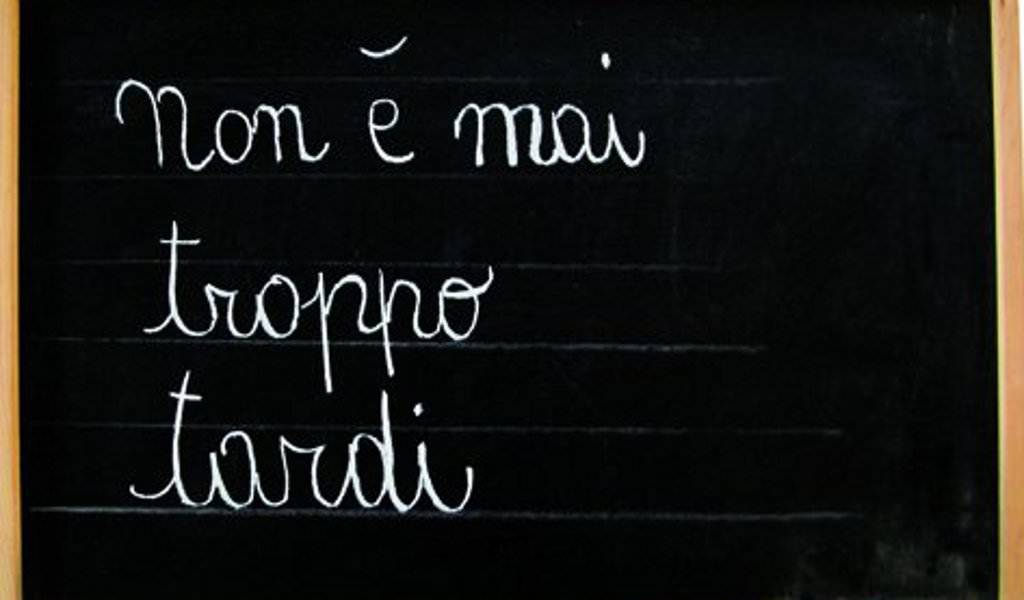 Non è mai
troppo
tardi